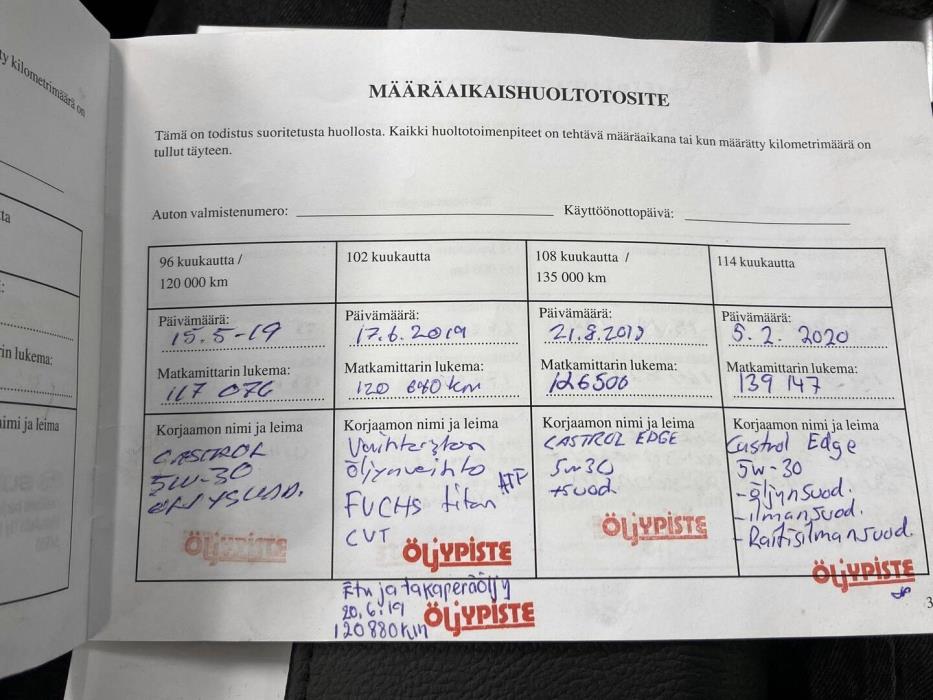 ty kilometrimäärä on
ta
:
in lukema:
imi ja leima
MÄÄRÄAIKAISHUOLTOTOSITE
Tämä on todistus suoritetusta huollosta. Kaikki huoltotoimenpiteet on tehtävä määräaikana tai kun määrätty kilometrimäärä on
tullut täyteen.
Auton valmistenumero:
Käyttöönottopäivä:
96 kuukautta /
120 000 km
Päivämäärä:
15.5-19
Matkamittarin lukema:
117 076
Korjaamon nimi ja leima
CASTROL
5W-30
ÖLJYPISTE
102 kuukautta
Päivämäärä:
17.6.2019
Matkamittarin lukema:
120 840 km
Korjaamon nimi ja leima
Vaihteiston
öljynvaihto
ATF
FUCHS titan
CVT
ÖLJYPISTE
Etu ja takaperäöljy
20.6.19
120880km
ÖLJYPISTE
108 kuukautta /
135 000 km
Päivämäärä:
21.8.2019
Matkamittarin lukema:
126500
Korjaamon nimi ja leima
CASTROL EDGE
5w30
+suod
ÖLJYPISTE
114 kuukautta
Päivämäärä:
5.2.2020
Matkamittarin lukema:
139 147
Korjaamon nimi ja leima
Castrol Edge
5W-30
-öljynsuod.
-ilmansuod.
-Raitisilmansuod.
ÖLJYPISTE
3